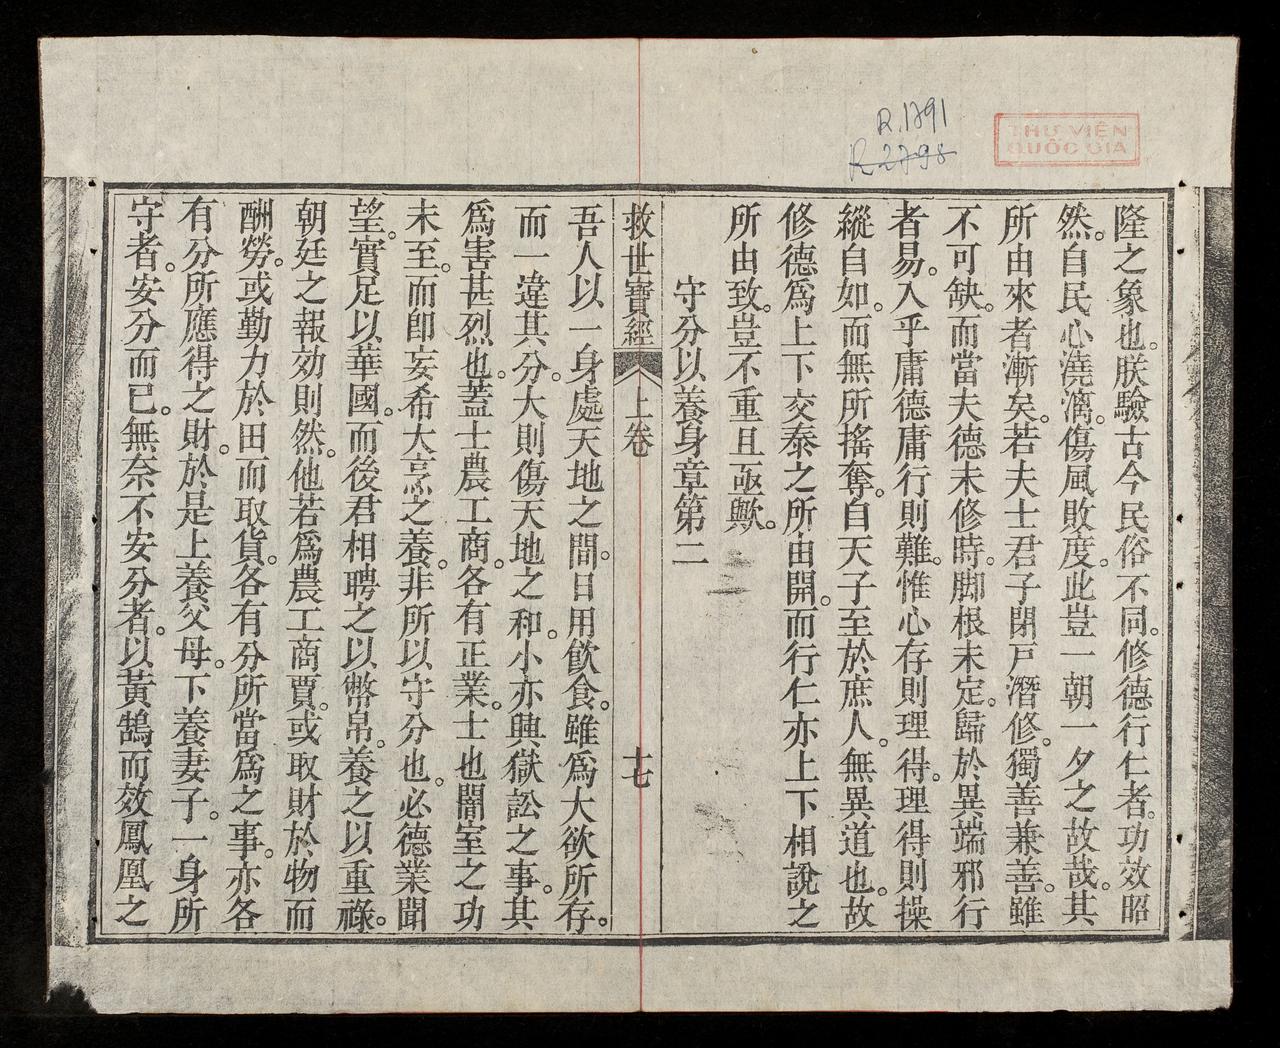 R.1791
R 2798
THƯ VIÊN
QUỐC GIA
隆之象也。朕驗古今民俗不同。修德行仁者。功效昭
然。自民心澆漓。傷風敗度。此豈一朝一夕之故哉。其
所由來者漸矣。若夫士君子閉戸潛修。獨善兼善。雖
不可缺。而當夫德未修時。脚根未定。歸於異端邪行
者易。入乎庸德庸行則難。惟心存則理得。理得則操
縱自如。而無所搖奪。自天子至於庶人。無異道也。故
修德爲上下交泰之所由開。而行仁亦上下相說之
所由致。豈不重且亟歟。
守分以養身章第二
救世寶經 上卷 十七
吾人以一身處天地之間。日用飲食。雖爲大欲所存。
而一違其分。大則傷天地之和。小亦興獄訟之事。其
爲害甚烈也。蓋士農工商。各有正業。士也闇室之功
未至。而即妄希大烹之養。非所以守分也。必德業聞
望。實足以華國。而後君相聘之以幣帛。養之以重祿。
朝廷之報効則然。他若爲農工商賈。或取財於物而
酬勞。或勤力於田而取貨。各有分所當爲之事。亦各
有分所應得之財。於是上養父母。下養妻子。一身所
守者。安分而已。無奈不安分者。以黃鵠而效鳳凰之